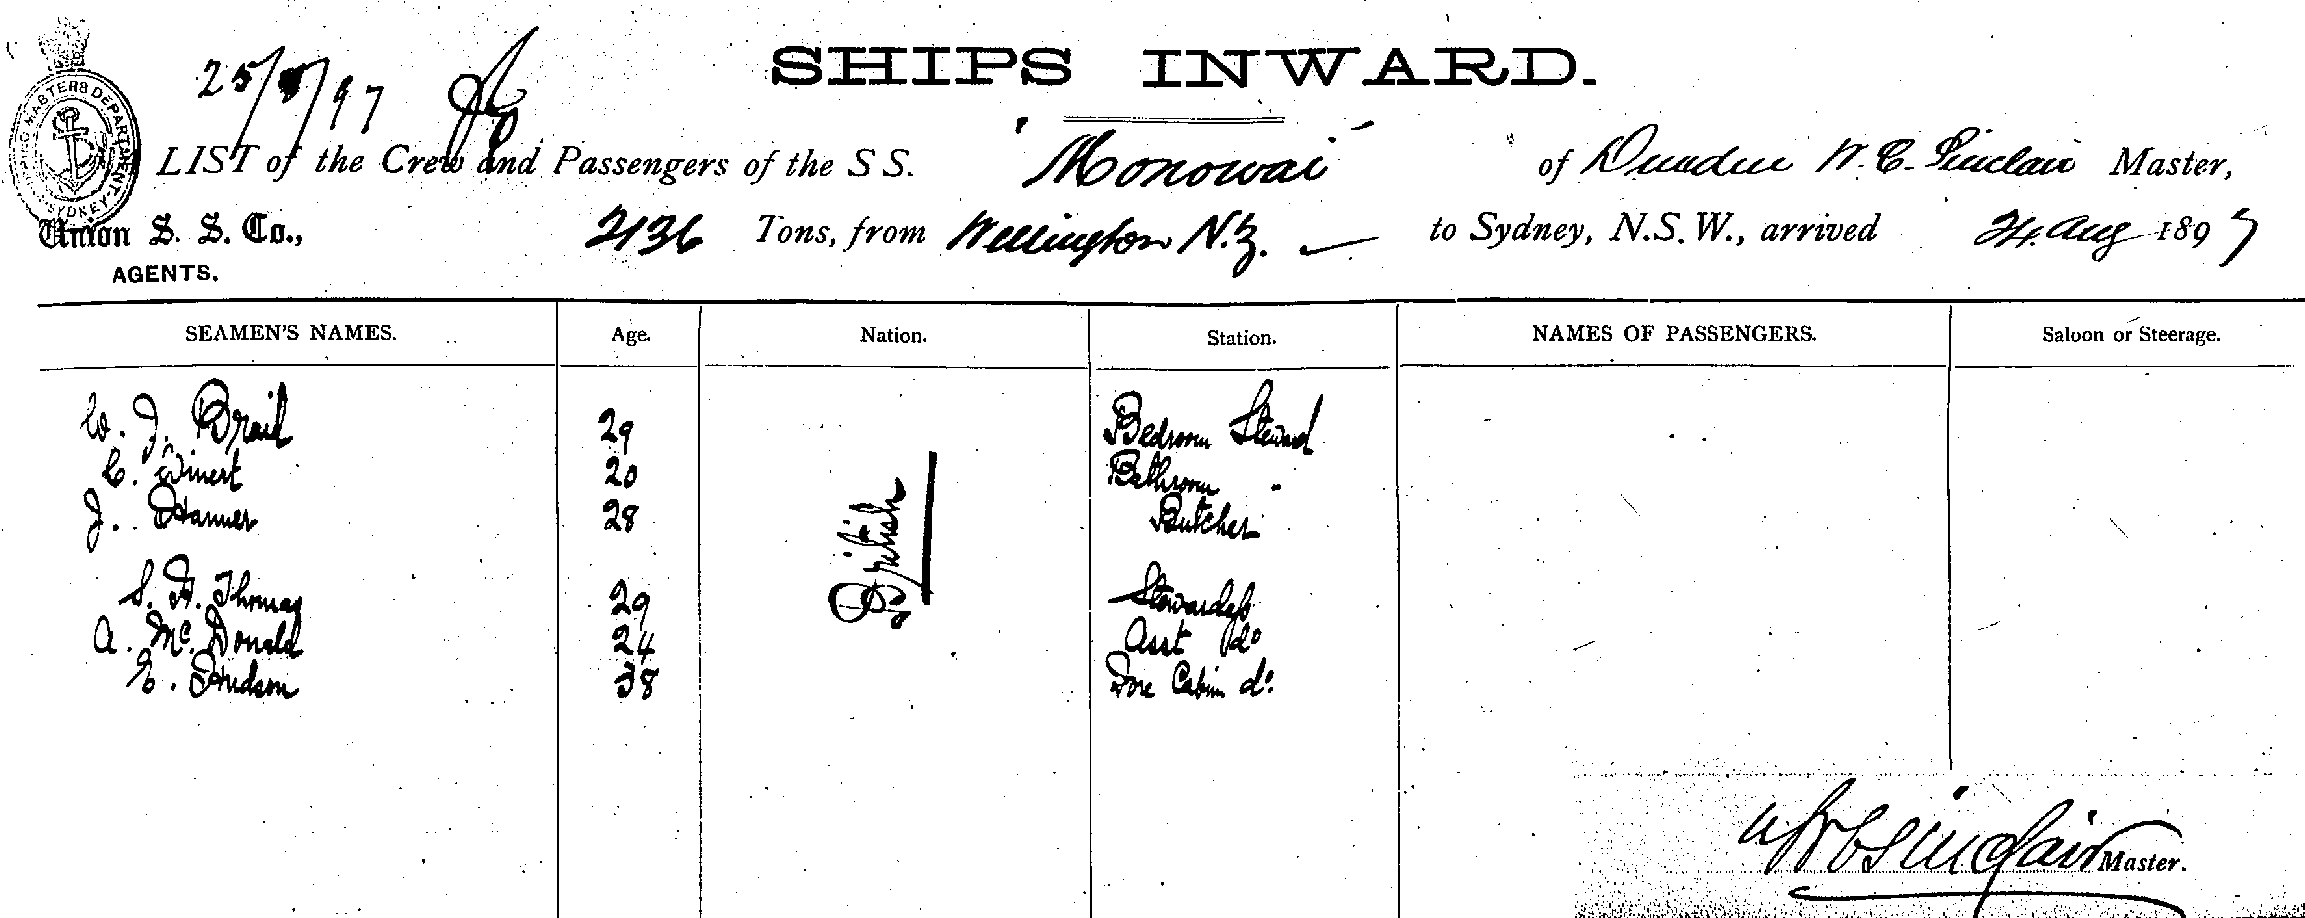 SHIPS INWARD.
25/8/97
SHIPPING MASTERS DEPARTMENT SYDNEY
LIST of the Crew and Passengers of the S S. "Monowai" of Dunedin W. C. Sinclair Master,
Union S. S. Co., AGENTS. 2136 Tons, from Wellington N.Z. — to Sydney, N.S.W., arrived 24 Aug 1897
SEAMEN'S NAMES. Age. Nation. Station. NAMES OF PASSENGERS. Saloon or Steerage.
W. J. Brail 29 Bedroom Steward
C. Winert 20 Bathroom "
J. Hamer 28 Butcher
British
S. A. Thomas 29 Stewardess
A. McDonald 24 Asst do
E. Hudson 38 Fore Cabin do.
W C Sinclair Master.